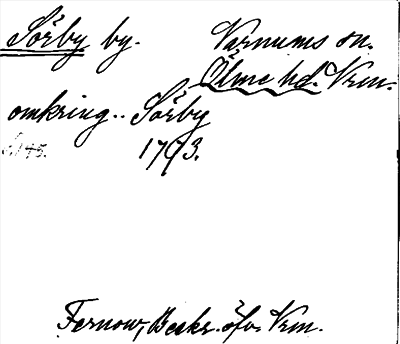 Sörby by. Varnums sn.
Ölme hd. Vrm.
omkring.. Sörby
s. 145. 1793.
Fernow, Beskr. öfv. Vrm.